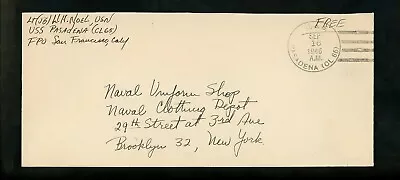 Lt(jg) W.H. Noel USN
USS Pasadena (CL65)
FPO San Francisco, Calif
FREE
SEP
10
A.M.
Naval Uniform Shop
Naval Clothing Depot
29th Street at 3rd Ave
Brooklyn 32, New York